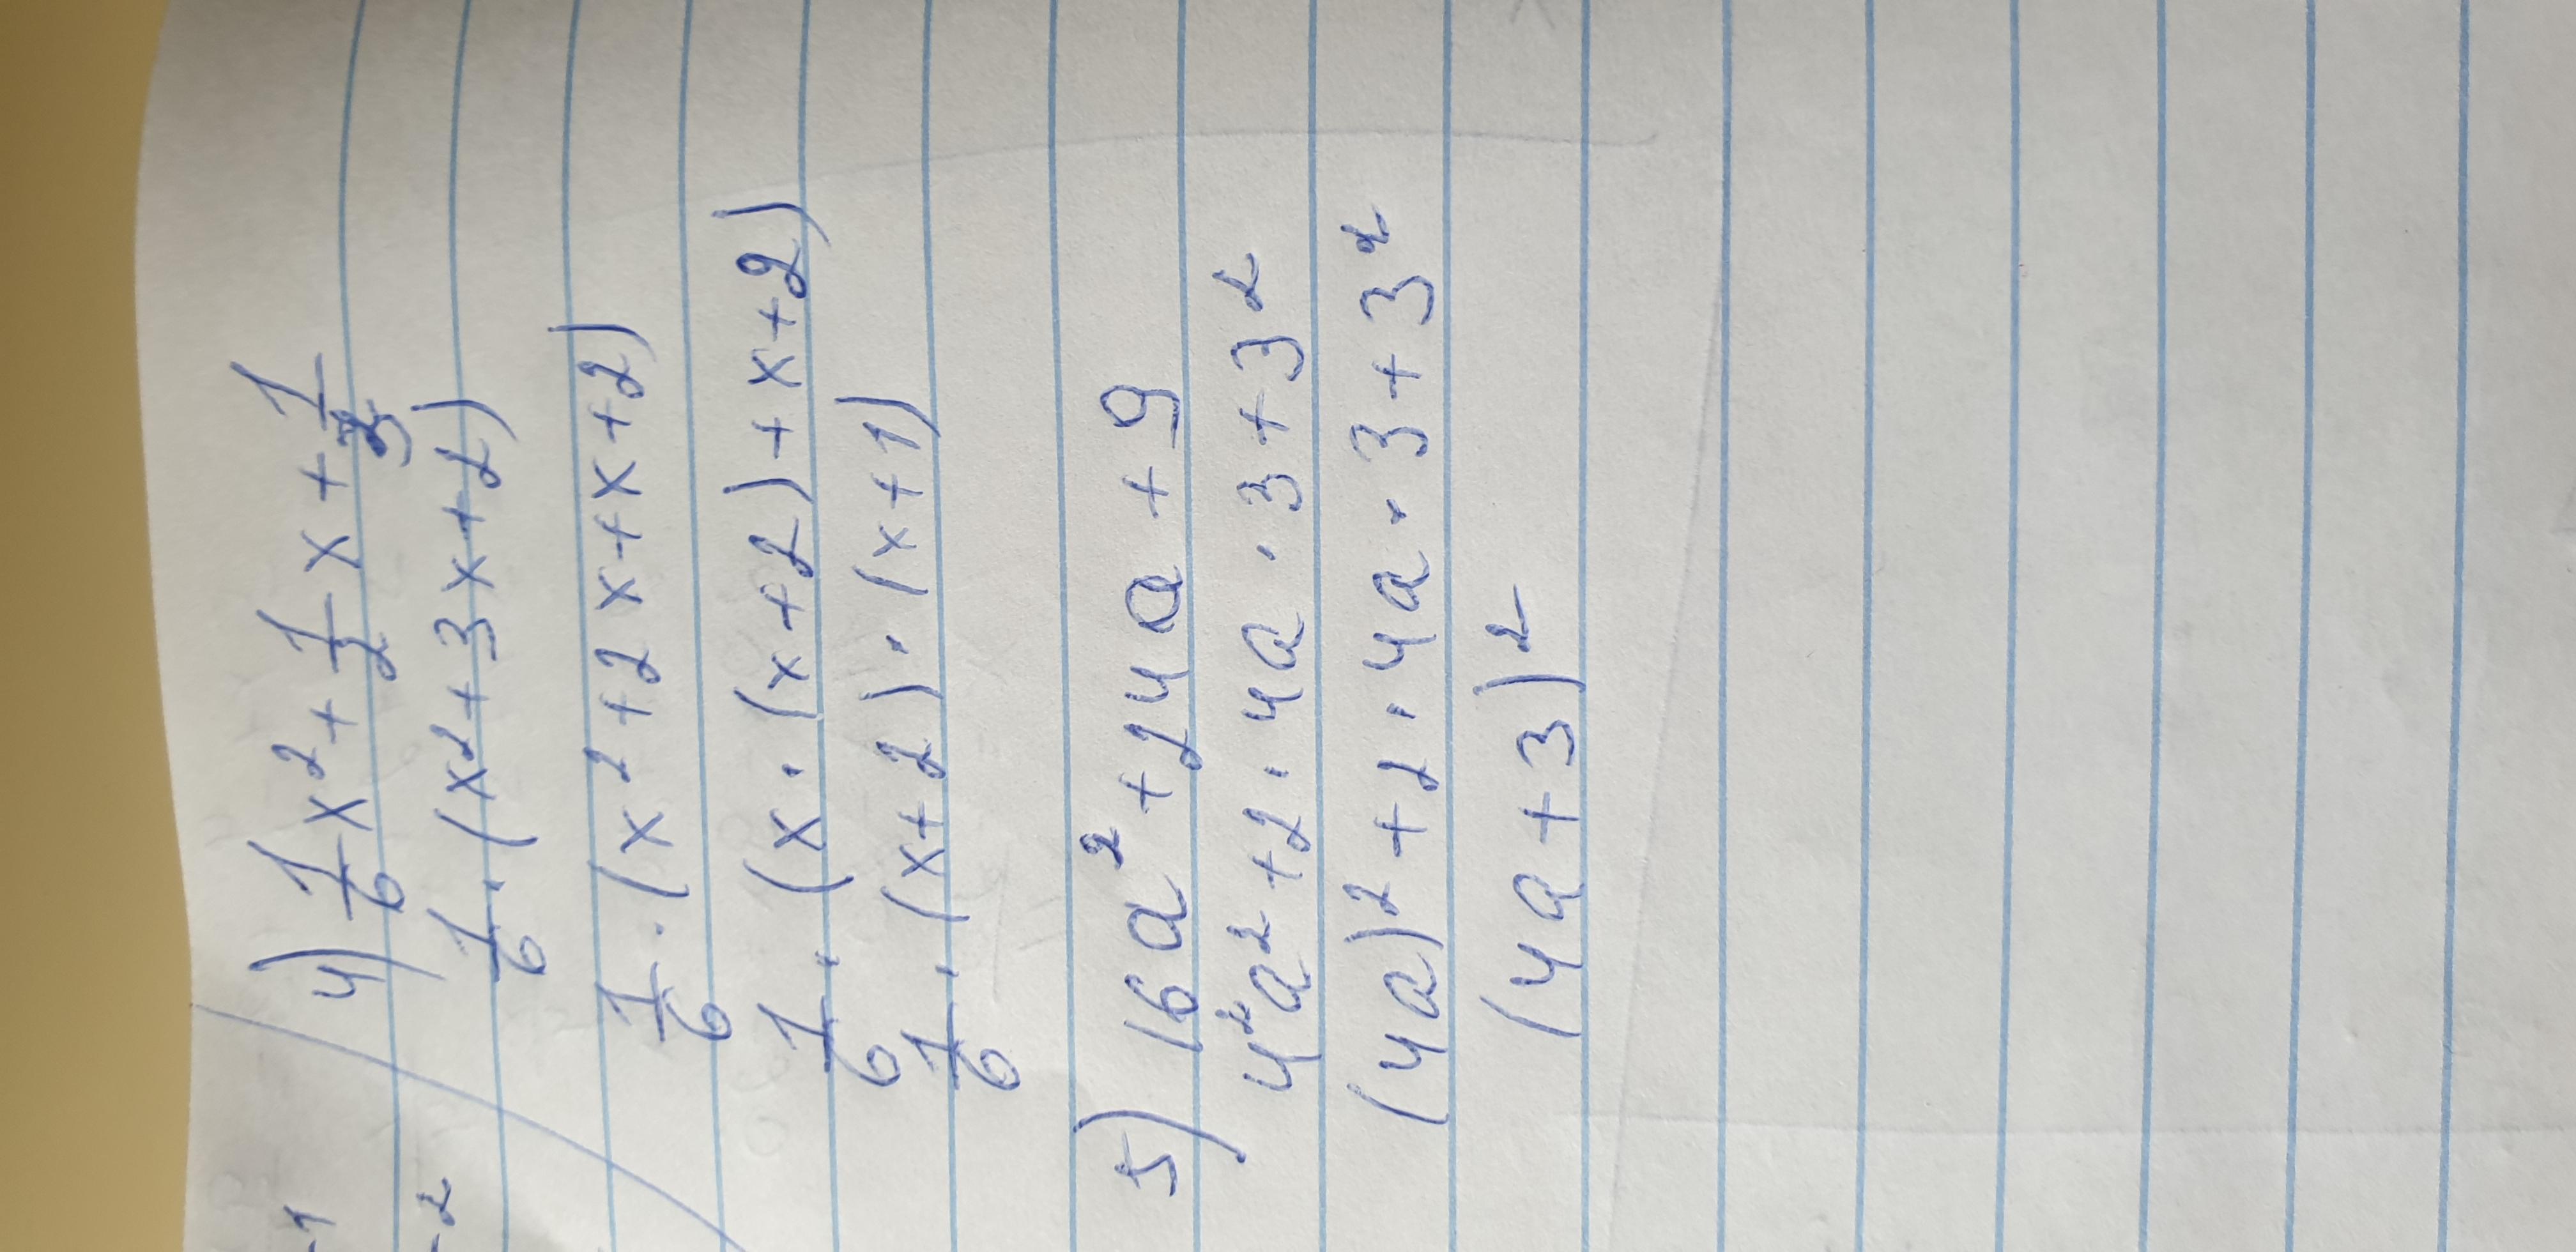 4) 1/6 x² + 1/2 x + 1/3
1/6 · (x² + 3x + 2)
1/6 · (x² + 2x + x + 2)
1/6 · (x · (x + 2) + x + 2)
1/6 · (x + 2) · (x + 1)
5) 16a² + 24a + 9
4²a² + 2 · 4a · 3 + 3²
(4a)² + 2 · 4a · 3 + 3²
(4a + 3)²
-1
-2